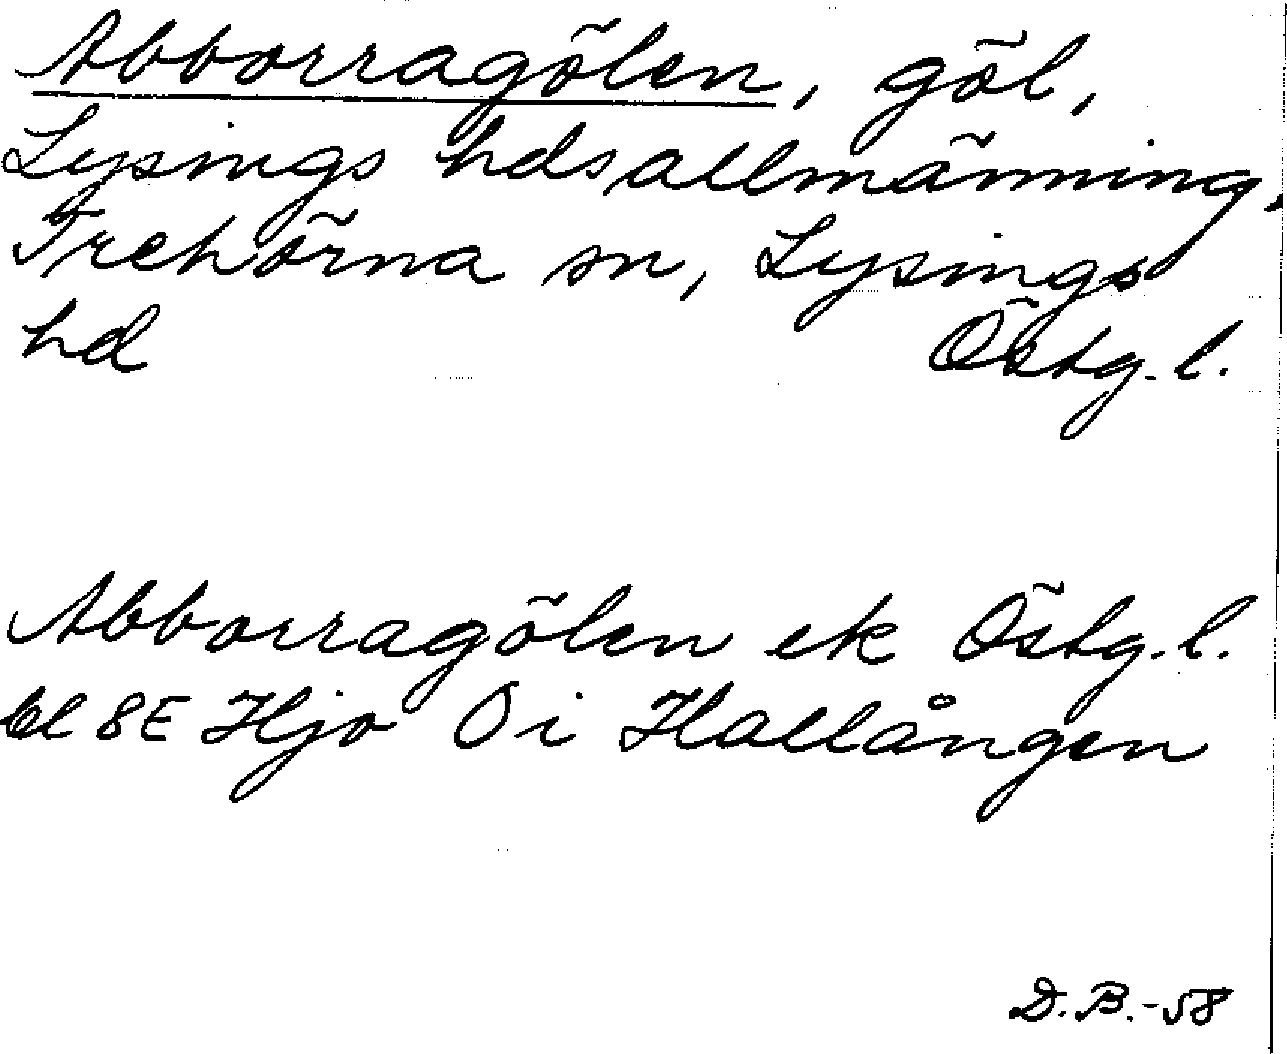 Abborragölen, göl,
Lysings hdsallmänning,
Trehörna sn, Lysings
hd Östg. l.
Abborragölen ek Östg. l.
bl 8E Hjo O i Hallången
D. B. -58